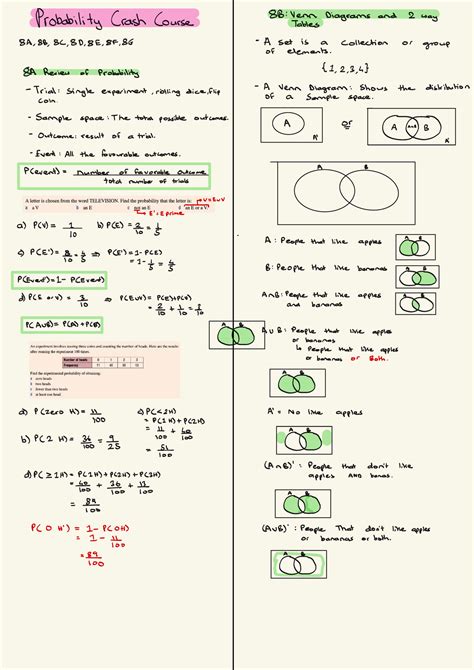 Probability Crash Course
8A, 8B, 8C, 8D, 8E, 8F, 8G
8A Review of Probability
- Trial: Single experiment, rolling dice, flip
coin.
- Sample space: The total possible outcomes.
- Outcome: result of a trial.
- Event: All the favourable outcomes.
P(event) = number of favorable outcome
total number of trials
A letter is chosen from the word TELEVISION. Find the probability that the letter is:
a a V b an E c not an E d an E or a V?
→ V = E ∪ V
↳ E' = E prime
a) P(V) = 1/10 b) P(E) = 2/10 = 1/5
c) P(E') = 8/10 = 4/5 ⇒ P(E') = 1 - P(E)
= 1 - 1/5 = 4/5
P(Event') = 1 - P(Event)
d) P(E or V) = 3/10 ⇒ P(E∪V) = P(E) + P(V)
= 2/10 + 1/10 = 3/10
P(A∪B) = P(A) + P(B)
An experiment involves tossing three coins and counting the number of heads. Here are the results
after running the experiment 100 times.
Number of heads 0 1 2 3
Frequency 11 40 36 13
Find the experimental probability of obtaining:
a zero heads
b two heads
c fewer than two heads
d at least one head
a) P(zero H) = 11/100 c) P(<2H)
= P(1H) + P(2H)
b) P(2 H) = 36/100 = 9/25 = 11/100 + 40/100
= 51/100
d) P(≥1H) = P(1H) + P(2H) + P(3H)
= 40/100 + 36/100 + 13/100
= 89/100
P(0 H') = 1 - P(0H)
= 1 - 11/100
= 89/100
8B: Venn Diagrams and 2 way
Tables
- A set is a collection or group
of elements.
{1, 2, 3, 4}
- A Venn Diagram: Shows the distribution
of a Sample space.
A A' or A A∩B B
A B
A: People that like apples A B
B: People that like bananas A B
A∩B: People that like apples A B
and bananas
A B A∪B: People that like apples
or bananas
↳ People that like apples
or bananas or Both.
A B
A' = No like apples
A B
(A∩B)': People that don't like
apples AND banas.
A B
(A∪B)': People That don't like apples
or bananas or both.
A B